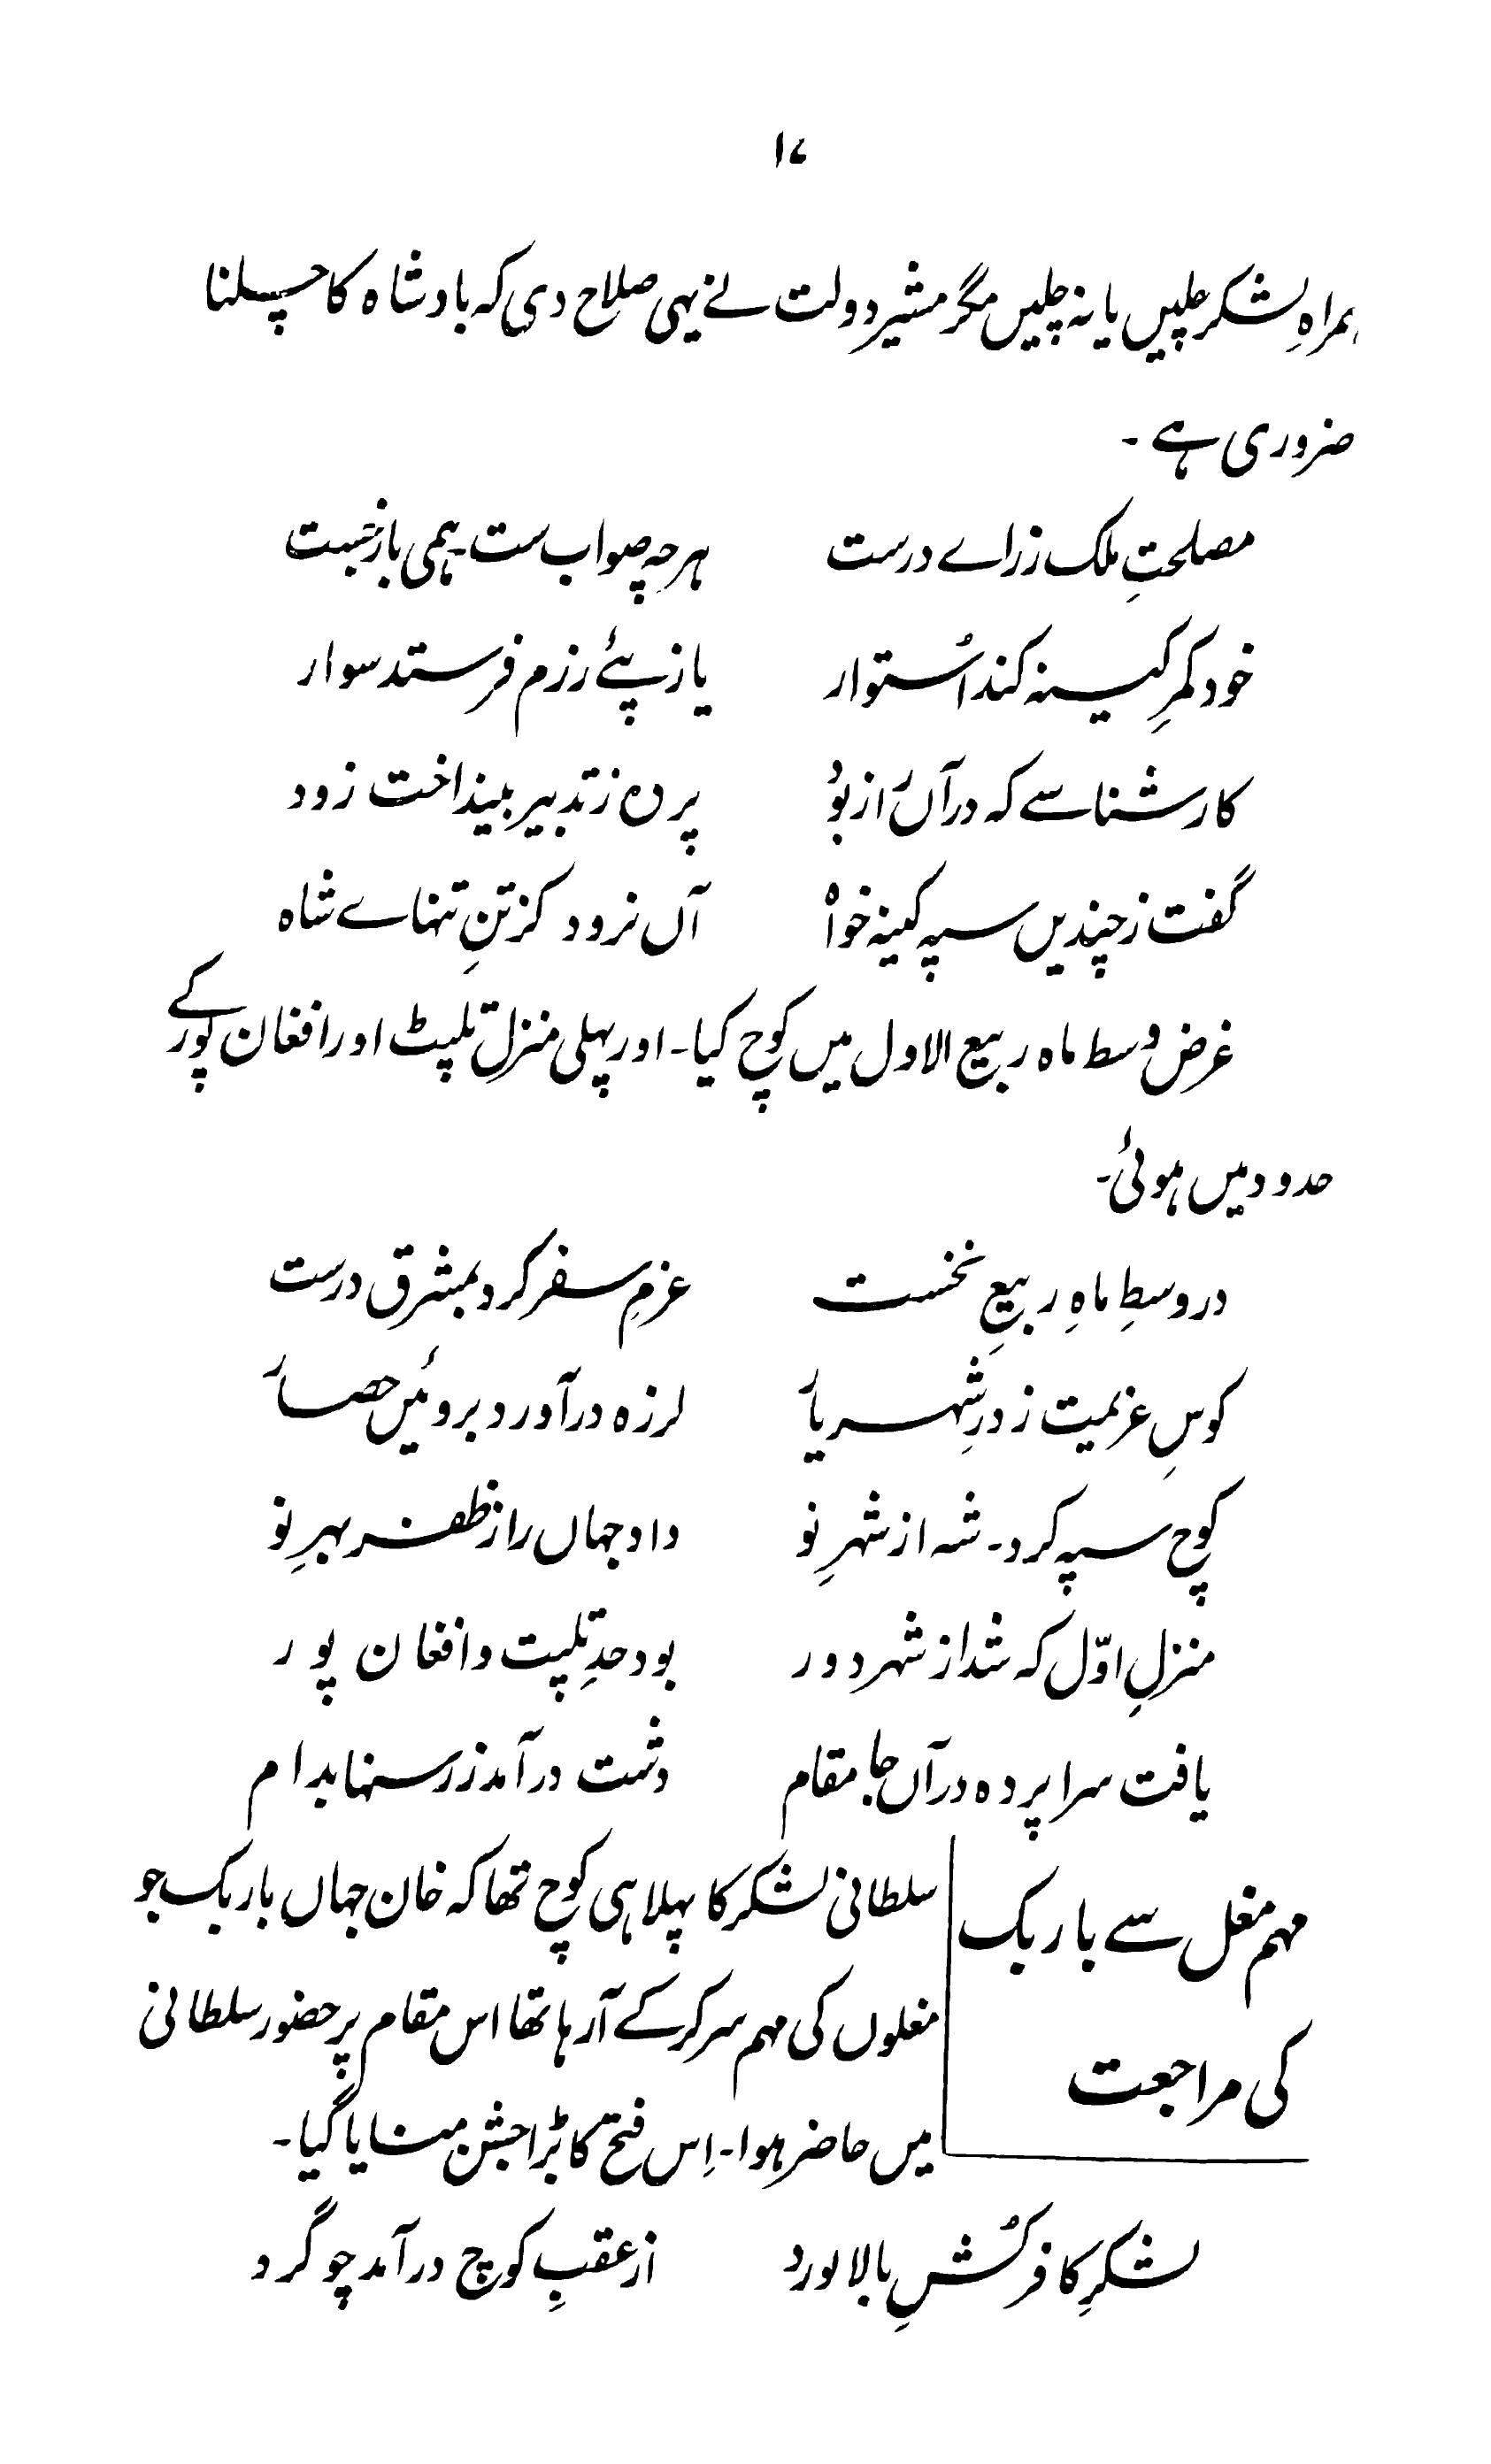 ۱۷
ہمراہِ لشکر چلیں یا نہ چلیں مگر مشیر دولت نے یہی صلاح دی کہ بادشاہ کا چلنا
ضروری ہے ۔
مصلحتِ ملک ز راے درست ہر چہ صواب ست ۔ ہمی باز جست
خود کمرِ کینہ کند اُستوار یا ز پئے رزم فرستد سوار
کار شناسے کہ در آں راز بوُد پردہ ز تدبیر بینداخت زود
گفت ز چندیں سپہ کینہ خواہ آں نرود کز تنِ تنہاے شاہ
غرض وسط ماہ ربیع الاول میں کوچ کیا ۔ اور پہلی منزل تلپٹ اور افغان پور کے
حدود میں ہوئی ۔
در وسطِ ماہِ ربیعِ نخست عزمِ سفر کرد بمشرق درست
کوسِ عزیمت ز درِ شہریار لرزہ در آورد بروئیں حصار
کوچ سپہ کرد ۔ شہ از شہرِ نو داد جہاں را ز ظفر بہرِ نو
منزلِ اوّل کہ شد از شہر دور بود حدِ تلپت و افغان پور
یافت سراپردہ در آں جا مقام دشت در آمد ز رسنہا بدام
مہم مغل سے باربک
کی مراجعت
سلطانی لشکر کا پہلا ہی کوچ تھا کہ خان جہاں باربک جو
مغلوں کی مہم سر کر کے آ رہا تھا اس مقام پر حضور سلطانی
میں حاضر ہوا ۔ اِس فتح کا بڑا جشن منایا گیا ۔
لشکرِ کافر کُشِ بالا نورد از عقبِ کوچ در آمد چو گرد